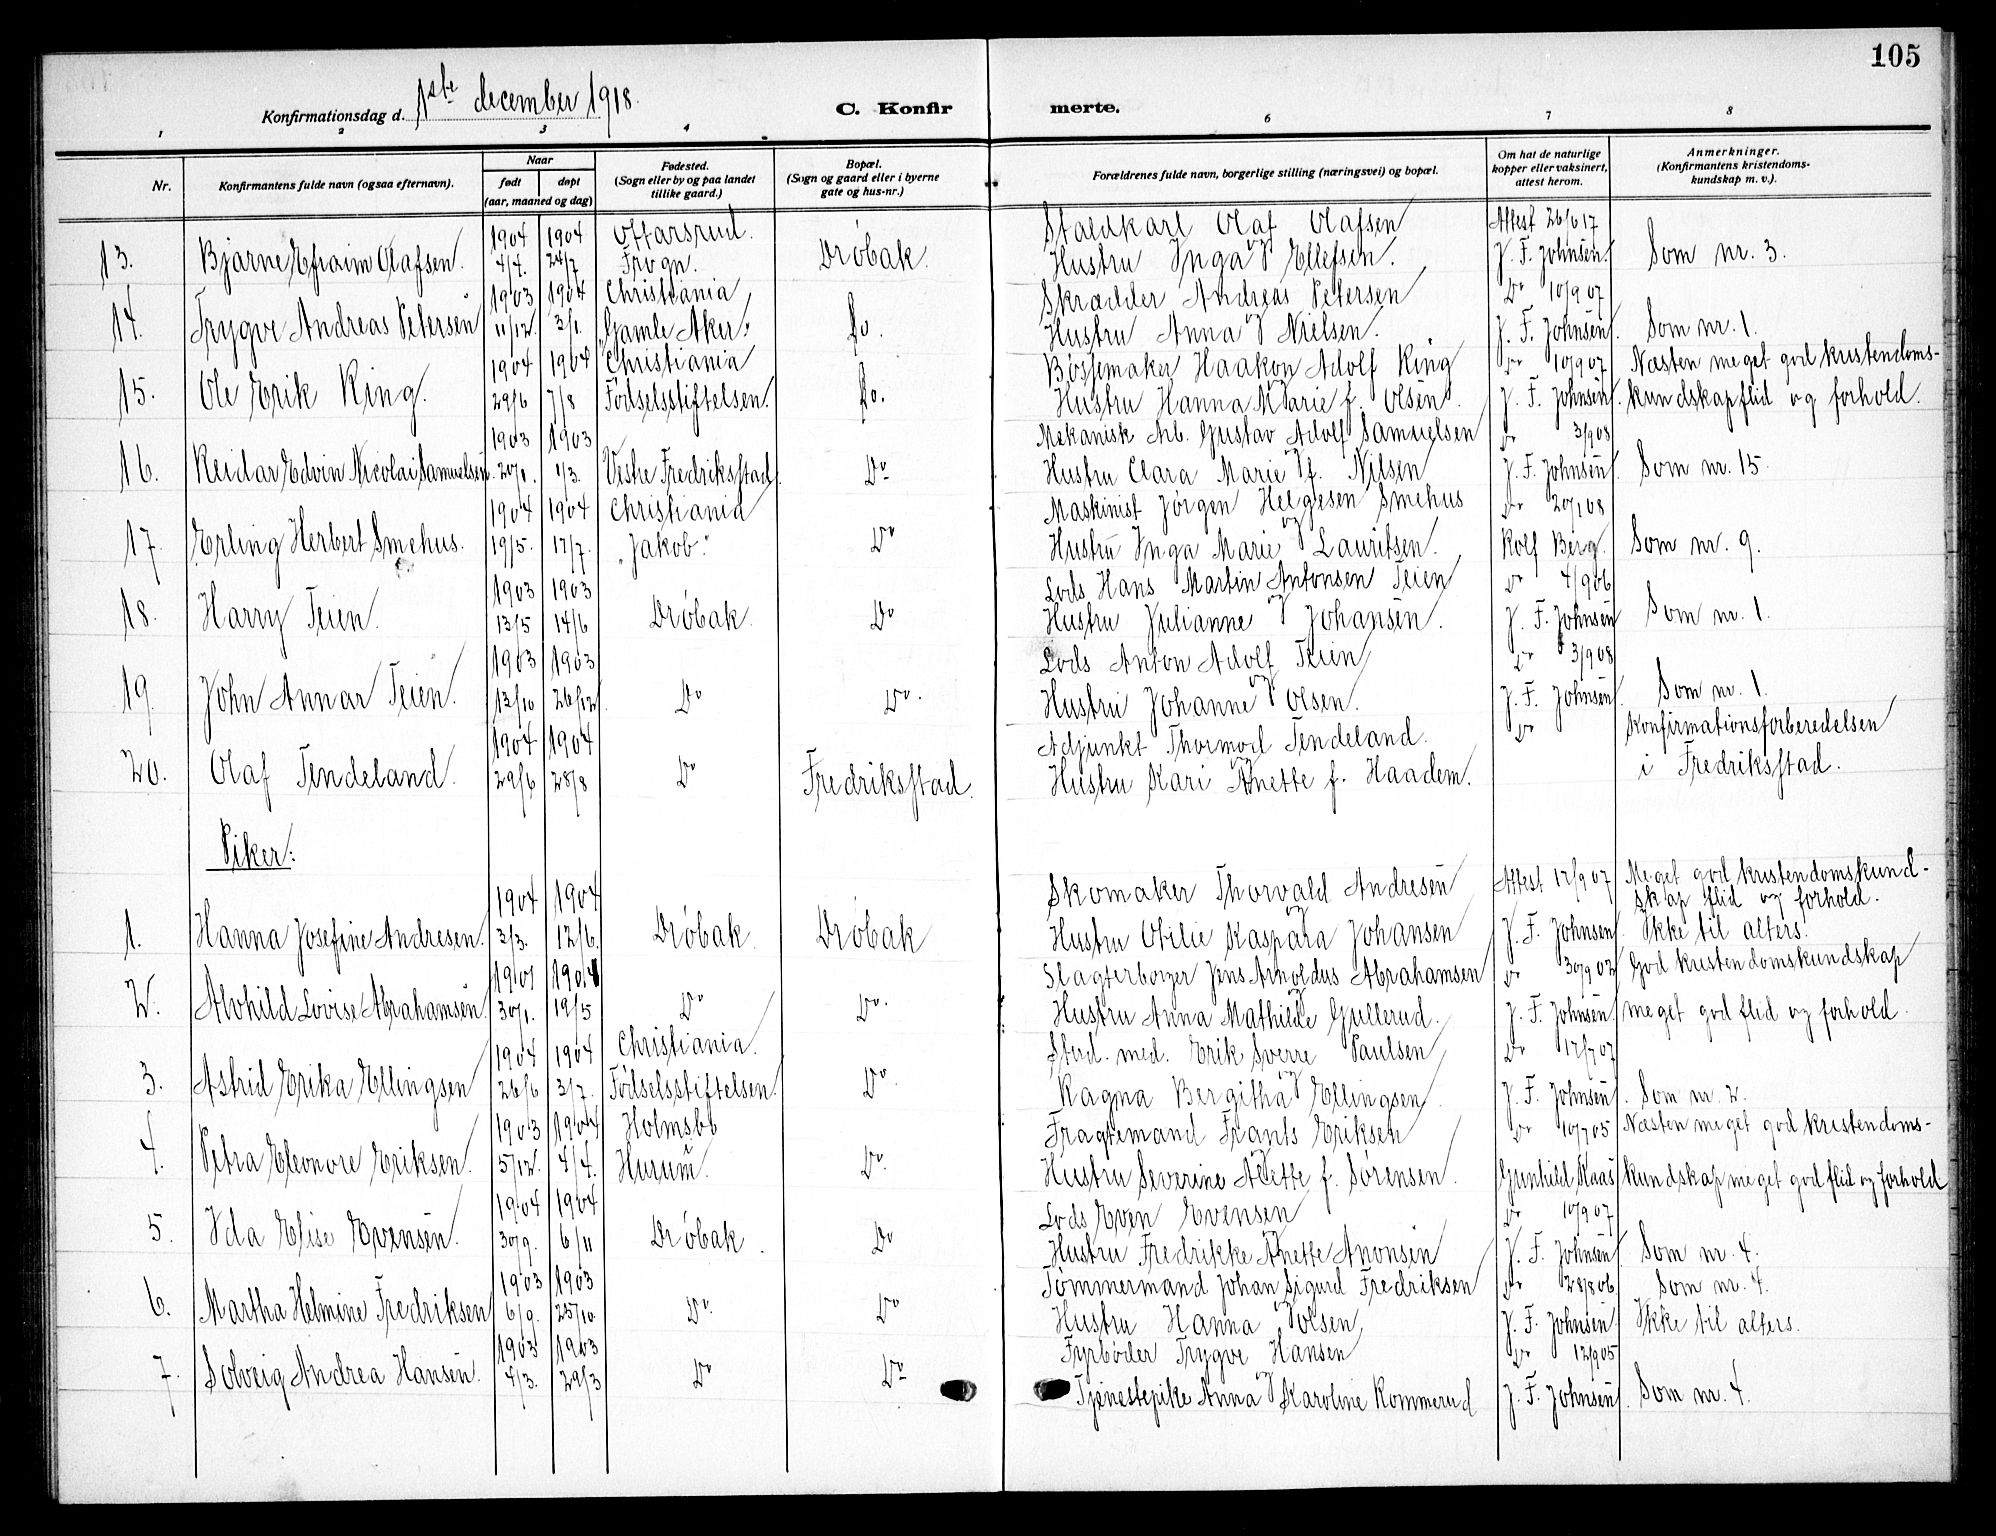 105
Konfirmationsdag d. 1ste december 1918.
C. Konfirmerte.
1 2 3 4 6 7 8
Nr.
Konfirmantens fulde navn (ogsaa efternavn).
Naar
født
døpt
(aar, maaned og dag)
Fødested.
(Sogn eller by og paa landet
tillike gaard.)
Bopæl.
(Sogn og gaard eller i byerne
gate og hus-nr.)
Forældrenes fulde navn, borgerlige stilling (næringsvei) og bopæl.
Om hat de naturlige
kopper eller vaksinert,
attest herom.
Anmerkninger.
(Konfirmantens kristendoms-
kundskap m. v.).
1904 1904 Ottarsrud. Staldkarl Olaf Olafsen Attest 26/6 17
13. Bjarne Efraim Olafsen. 4/4. 24/7 Frogn. Drøbak. Hustru Inga f Ellefsen. J. F. Johnsen. Som nr. 3.
1903 1904 Christiania Skrædder Andreas Petersen Do 10/9 07
14. Trygve Andreas Petersen 11/12. 3/1. "Gamle Aker." Do. Hustru Anna f Nielsen. J. F. Johnsen. Som nr. 1.
1904 1904 Christiania Bøssemaker Haakon Adolf Ring Do 10/9 07 Næsten meget god kristendoms-
15. Ole Erik Ring. 29/6 7/8 Fødselsstiftelsen. Do. Hustru Hanna Marie f. Olsen. J. F. Johnsen. kundskap flid og forhold.
1903 1903 Mekanisk Arb. Gustav Adolf Samuelsen Do 3/9 08
16. Reidar Edvin Nicolai Samuelsen. 20/1. 1/3. Vestre Fredriksstad. Do Hustru Clara Marie f. Nilsen J. F. Johnsen. Som nr. 15.
1904 1904 Christiania Maskinist Jørgen Helgesen Smehus Do 20/1 08
17. Erling Herbert Smehus. 19/5. 17/7. "Jakob." Do Hustru Inga Marie f Lauritsen. Rolf Berg. Som nr. 9.
1903 1903 Lods Hans Martin Antonsen Teien Do 4/9 06
18. Harry Teien. 13/5 14/6 Drøbak. Do Hustru Julianne f Johansen. J. F. Johnsen Som nr. 1.
1903 1903 Lods Anton Adolf Teien Do 3/9 08
19. John Annar Teien. 13/10 26/12. Do Do. Hustru Johanne f Olsen. J. F. Johnsen. Som nr. 1.
1904 1904 Adjunkt Thormod Tendeland. Do Konfirmationsforberedelsen
20. Olaf Tendeland. 29/6 28/8 Do Fredriksstad. Hustru Kari Anette f. Haadem. i Fredriksstad.
Piker:
1904 1904 Skomaker Thorvald Andresen Attest 17/9 07 Meget god kristendomskund-
skap flid og forhold.
1. Hanna Josefine Andresen. 3/3. 12/6. Drøbak. Drøbak Hustru Otilie Kaspara f Johansen J. F. Johnsen. Ikke til alters.
1901 1901 Slagterborger Jens Arnoldus Abrahamsen Do 30/9 02 God kristendomskundskap
2. Alvhild Lovise Abrahamsen. 30/1. 19/5 Do Do. Hustru Anna Mathilde Gullerud. J. F. Johnsen. meget god flid og forhold.
1904 1904 Christiania. Stud. med. Erik Sverre Paulsen Do 17/7 07
3. Astrid Erika Ellingsen 26/6 3/7. Fødselsstiftelsen. Do. Ragna Bergitha Ellingsen. J. F. Johnsen. Som nr. 2.
1903 1904 Holmsbo Fragtemand Frants Eriksen Do 10/7 05 Næsten meget god kristendoms-
4. Petra Eleonore Eriksen. 5/12. 4/4. Hurum. Do. Hustru Severine Alette f. Sørensen. Gunhild Kaas kundskap meget god flid og forhold
1904 1904 Lods Even Evensen Do 10/9 07
5. Ida Elise Evensen. 30/9. 6/11 Drøbak. Do Hustru Fredrikke Anette Anonsen J. F. Johnsen Som nr. 4.
1903 1903 Tømmermand Johan Sigurd Fredriksen Do 28/8 06 Som nr. 4.
6. Martha Helmine Fredriksen 6/9. 25/10. Do. Do Hustru Hanna f Olsen. J. F. Johnsen. Ikke til alters.
1903 1903 Fyrbøder Trygve Hansen Do 12/9 05
7. Solveig Andrea Hansen. 4/3. 29/3 Do Do Tjenestepike Anna Karoline Kommerud J. F. Johnsen. Som nr. 4.